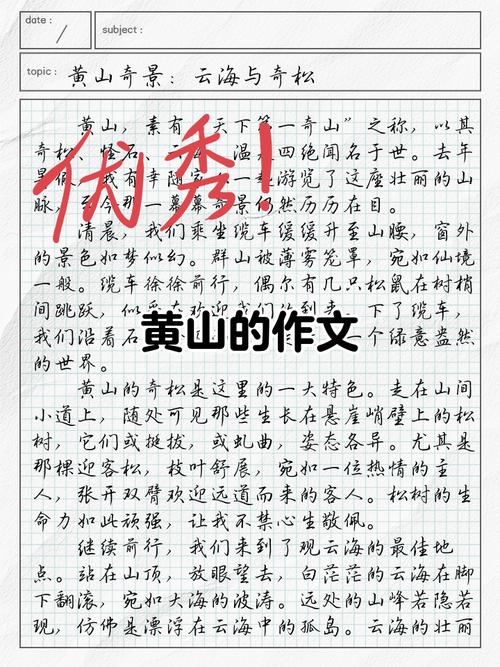 date:
subject:
topic: 黄山奇景：云海与奇松
黄山，素有“天下第一奇山”之称，以其
奇松、怪石、云海、温泉四绝闻名于世。去年
我有幸随家一起游览了这座壮丽的山
脉，至今那一幕幕奇景仍然历历在目。
优秀！
清晨，我们乘坐缆车缓缓升至山腰，窗外
的景色如梦似幻。群山被薄雾笼罩，宛如仙境
一般。缆车徐徐前行，偶尔有几只松鼠在树梢
间跳跃，似乎在欢迎我们的到来。下了缆车，
我们沿着石一个绿意盎然
黄山的作文
的世界。
黄山的奇松是这里的一大特色。走在山间
小道上，随处可见那些生长在悬崖峭壁上的松
树，它们或挺拔，或虬曲，姿态各异。尤其是
那棵迎客松，枝叶舒展，宛如一位热情的主
人，张开双臂欢迎远道而来的客人。松树的生
命力如此顽强，让我不禁心生敬佩。
继续前行，我们来到了观云海的最佳地
点。站在山顶，放眼望去，白茫茫的云海在脚
下翻滚，宛如大海的波涛。远处的山峰若隐若
现，仿佛是漂浮在云海中的孤岛。云海的壮丽